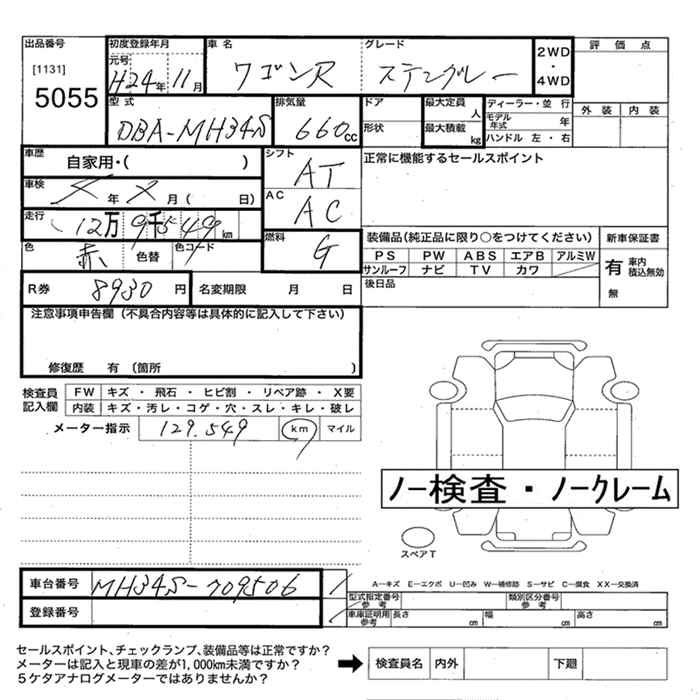 出品番号 初度登録年月 車名 グレード 2WD・4WD 評価点
[1131] 元号 H24年11月 ワゴンR スティングレー
5055 型式 排気量 ドア 最大定員 人 ディーラー・並行 外装 内装
DBA-MH34S 660cc 形状 最大積載 kg モデル年式 年
ハンドル 左・右
車歴 自家用・( ) シフト AT 正常に機能するセールスポイント
車検 年 月( 日) AC AC
走行 12万9千549km
色 赤 色替 色コード 燃料 G 装備品(純正品に限り○をつけてください) 新車保証書
PS PW ABS エアB アルミW 有 車内積込無効
サンルーフ ナビ TV カワ
R券 8930円 名変期限 月 日 後日品 無
注意事項申告欄(不具合内容等は具体的に記入して下さい)
修復歴 有 (箇所 )
検査員記入欄 FW キズ・飛石・ヒビ割・リペア跡・X要
内装 キズ・汚レ・コゲ・穴・スレ・キレ・破レ
メーター指示 129.549 km マイル
ノー検査・ノークレーム
スペアT
車台番号 MH34S-709506
A-キズ E-エクボ U-凹み W-補修跡 S-サビ C-腐食 XX-交換済
登録番号 型式指定番号 参考 類別区分番号 参考
車庫証明用 参考 長さ cm 幅 cm 高さ cm
セールスポイント、チェックランプ、装備品等は正常ですか?
メーターは記入と現車の差が1,000km未満ですか?
5ケタアナログメーターではありませんか?
検査員名 内外 下廻